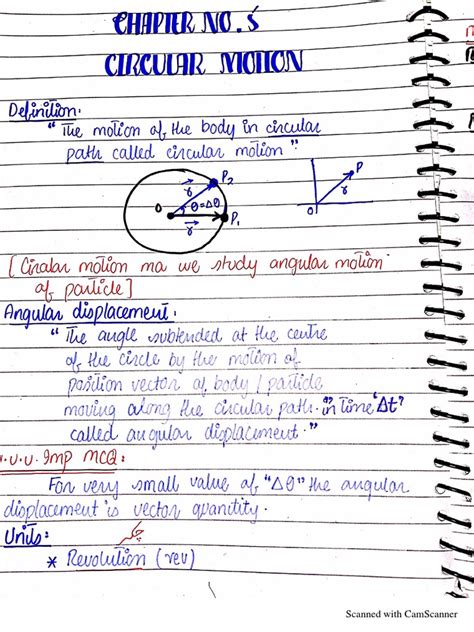 CHAPTER NO. 5
CIRCULAR MOTION
Definition:
"The motion of the body in circular
path called circular motion"
P₂
r⃗
O
θ=Δθ
P₁
r⃗
P
r⃗
O
[Ciralar motion ma we study angular motion
of particle]
Angular displacement:
"The angle subtended at the centre
of the circle by the motion of
position vector of body / particle
moving along the circular path. in Time 'Δt'
called angular displacement."
V.V.V. Imp MCQ:
For very small value of "Δθ" the angular
displacement is vector quantity.
Units:
چکر
* Revolution (rev)
Scanned with CamScanner